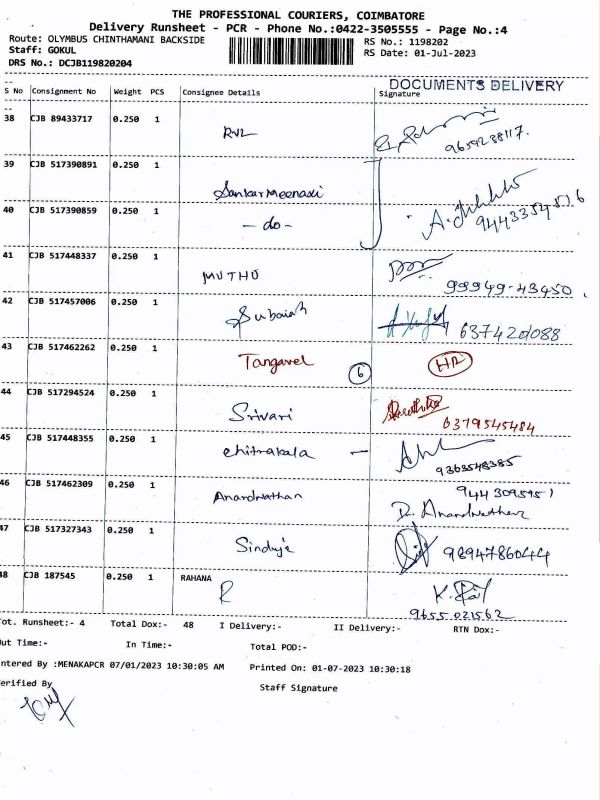 THE PROFESSIONAL COURIERS, COIMBATORE
Delivery Runsheet - PCR - Phone No.:0422-3505555 - Page No.:4
Route: OLYMBUS CHINTHAMANI BACKSIDE RS No.: 1198202
Staff: GOKUL RS Date: 01-Jul-2023
DRS No.: DCJB119820204
DOCUMENTS DELIVERY
S No Consignment No Weight PCS Consignee Details Signature
38 CJB 89433717 0.250 1 RVL
9659238117.
39 CJB 517390891 0.250 1
Sankar Meenaxi
40 CJB 517390859 0.250 1 - do - 9443354516
41 CJB 517448337 0.250 1
MUTHU 99949-43450.
42 CJB 517457006 0.250 1 Subaiah
63742d088
43 CJB 517462262 0.250 1
Tangavel 6 HR
44 CJB 517294524 0.250 1 Srivari
6379545484
45 CJB 517448355 0.250 1 chitrakala -
9363548385
46 CJB 517462309 0.250 1 Anandnathan 9443095951
47 CJB 517327343 0.250 1
Sinduje 9894786044
48 CJB 187545 0.250 1 RAHANA
R
9655 021562
Tot. Runsheet:- 4 Total Dox:- 48 I Delivery:- II Delivery:- RTN Dox:-
Out Time:- In Time:- Total POD:-
Entered By :MENAKAPCR 07/01/2023 10:30:05 AM Printed On: 01-07-2023 10:30:18
Verified By Staff Signature